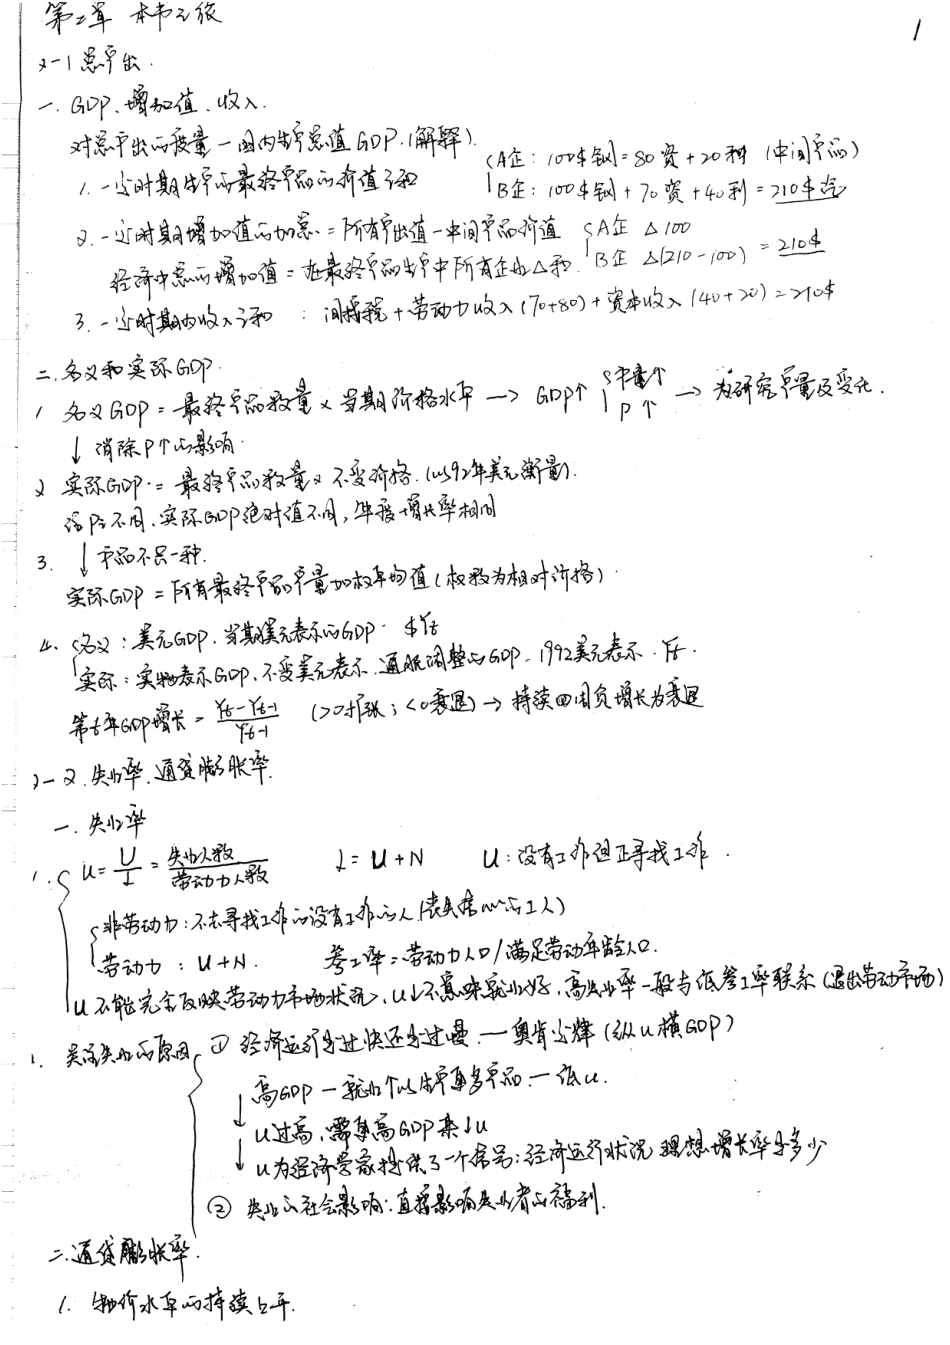 第二章 本书之旅
1
2-1 总产出.
一. GDP、增加值、收入.
对总产出的度量—国内生产总值GDP.(解释).
1. 一定时期生产的最终产品的价值之和 { A企: 100$钢=80资+20利 (中间产品)
B企: 100$钢+70资+40利=210$汽
2. 一定时期增加值的加总.=所有产出值-中间产品价值 { A企 △100
经济中总的增加值=在最终产品生产中所有企业△和. B企 △(210-100) =210$
3. 一定时期内收入之和 : 间接税+劳动力收入(70+80)+资本收入(40+20)=210$
二. 名义和实际GDP.
1 名义GDP=最终产品数量×当期价格水平 → GDP↑ { 产量↑ P↑ → 为研究产量及变化.
↓ 消除P↑的影响.
2 实际GDP.=最终产品数量×不变价格.(以92年美元衡量).
设P不同,实际GDP绝对值不同,年度增长率相同
3. ↓ 产品不只一种.
实际GDP=所有最终产品产量加权平均值(权数为相对价格).
4. { 名义:美元GDP.当期美元表示的GDP. $Yt
实际:实物表示GDP,不变美元表示.通胀调整的GDP.1992美元表示.Yt.
第t年GDP增长=(Yt-Yt-1)/Yt-1 (>0扩张;<0衰退)→持续四周负增长为衰退
2-2.失业率.通货膨胀率.
一. 失业率
1. { u=U/L=失业人数/劳动力人数 L=U+N U:没有工作但正寻找工作.
{ 非劳动力:不去寻找工作的没有工作的人(丧失信心的工人)
劳动力:U+N. 参工率=劳动力人口/满足劳动年龄人口.
u不能完全反映劳动力市场状况,u↓不意味就业好,高失业率一般与低参工率联系(退出劳动市场)
2. 关注失业的原因 { ① 经济运行是过快还是过慢.—奥肯定律(纵u横GDP)
高GDP—就业↑以生产更多产品.—低u.
↓ u过高,需更高GDP来↓u
↓ u为经济学家提供了一个信号:经济运行状况 理想增长率是多少
② 失业的社会影响:直接影响失业者的福利.
二.通货膨胀率.
1. 物价水平的持续上升.